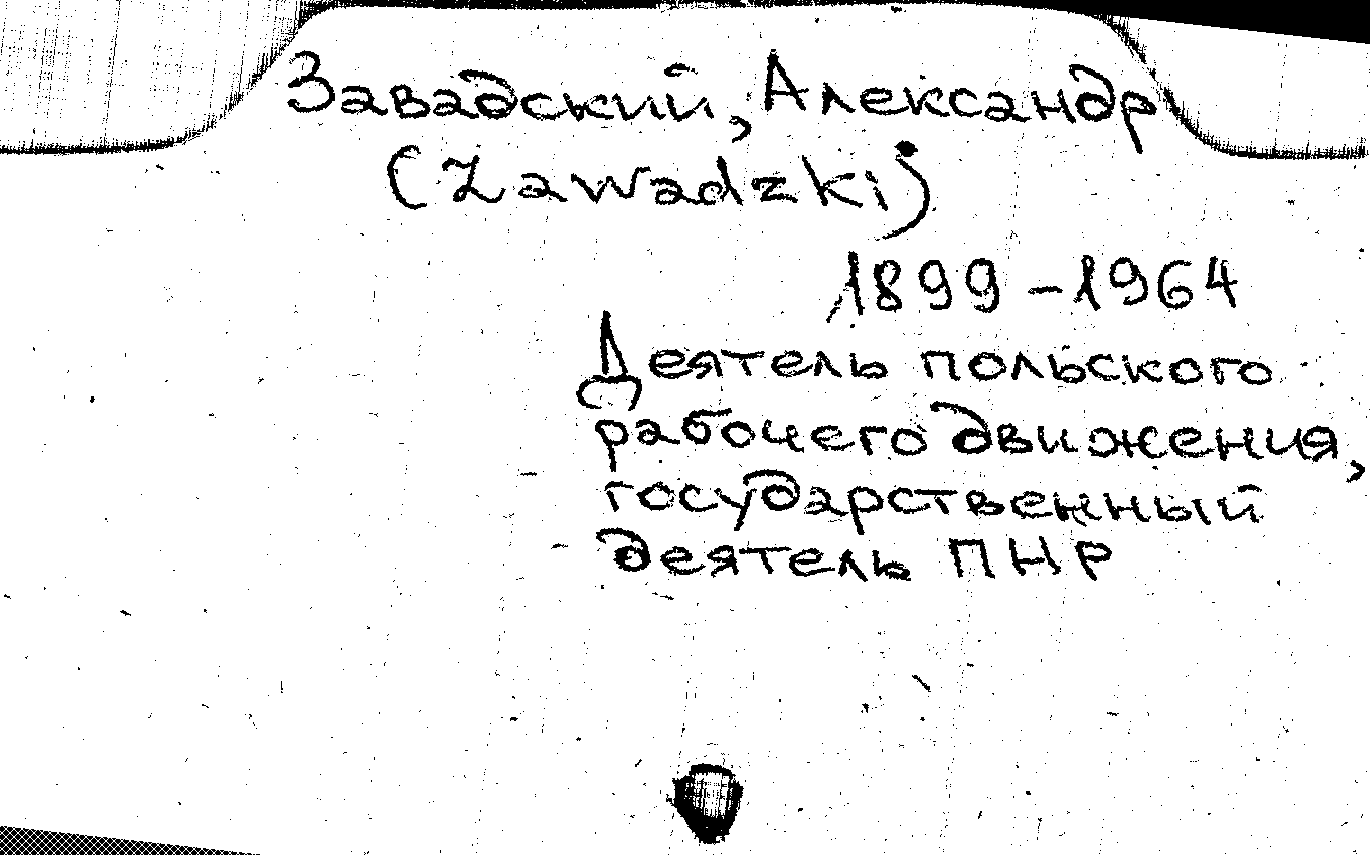 Завадский, Александр
(Zawadzki)
1899-1964
Деятель польского
рабочего движения,
государственный
деятель ПНР